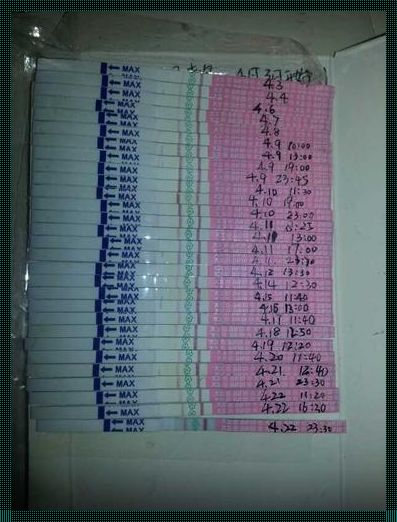 MAX 4.3
MAX 4.4
MAX 4.6
MAX 4.7
MAX 4.8
MAX 4.9 10:00
MAX 4.9 13:00
MAX 4.9 19:00
MAX 4.9 23:45
MAX 4.10 11:30
MAX 4.10 19:00
MAX 4.10 23:00
MAX 4.11
MAX 13:00
MAX 4.11
MAX 23:30
MAX 4.12 13:30
MAX 4.14 12:30
MAX 4.15 11:40
MAX 4.16 13:00
MAX 4.17 11:40
MAX 4.18 12:50
MAX 4.19 12:20
MAX 4.20 11:40
MAX 4.21 12:40
MAX 4.21 23:30
MAX 4.22 11:20
MAX 4.22 16:20
MAX 4.22 23:30